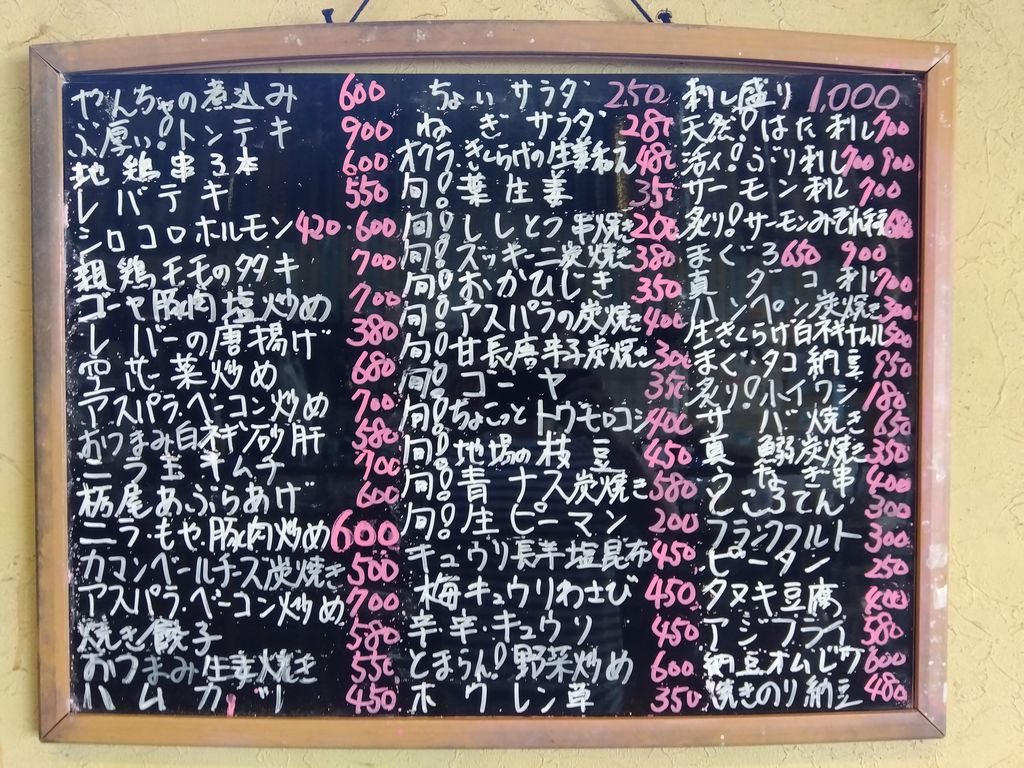 やんちゃの煮込み 600
ぶ厚い!トンテキ 900
地鶏串3本 600
レバテキ 550
シロコロホルモン 420・600
親鶏モモのタタキ 700
ゴーヤ豚肉塩炒め 700
レバーの唐揚げ 380
空芯菜炒め 680
アスパラ・ベーコン炒め 700
おつまみ白ネギ砂肝 580
ニラ玉キムチ 700
栃尾あぶらあげ 600
ニラ・もや・豚肉炒め 600
カマンベールチーズ炭焼き 500
アスパラ・ベーコン炒め 700
焼き餃子 580
おつまみ生姜焼き 550
ハムカツ 450
ちょいサラダ 250
ねぎサラダ 280
オクラ・きくらげの生姜和え 480
旬!葉生姜 350
旬!ししとう串焼き 200
旬!ズッキーニ炭焼き 380
旬!おかひじき 350
旬!アスパラの炭焼き 400
旬!甘長唐辛子炭焼き 300
旬!ゴーヤ 350
旬!ちょこっとトウモロコシ 400
旬!地場の枝豆 450
旬!青ナス炭焼き 580
旬!生ピーマン 200
キュウリ長芋塩昆布 450
梅キュウリわさび 450
辛・辛・キュウリ 450
とまらん!野菜炒め 600
ホウレン草 350
刺し盛り 1,000
天然!はた刺し 700
活〆!ぶり刺し 700 900
サーモン刺し 700
炙り!サーモンみぞれ
まぐろ 650 900
真ダコ刺し 700
ハンペン炭焼き 300
生きくらげ白ネギナムル 500
まぐ・タコ納豆 950
炙り!ホイワシ 180
サバ焼き 650
真鰯炭焼き 350
うなぎ串 400
ところてん 300
フランクフルト 300
ピータン 250
タヌキ豆腐 400
アジフライ 580
納豆オムレツ 600
焼きのり納豆 480